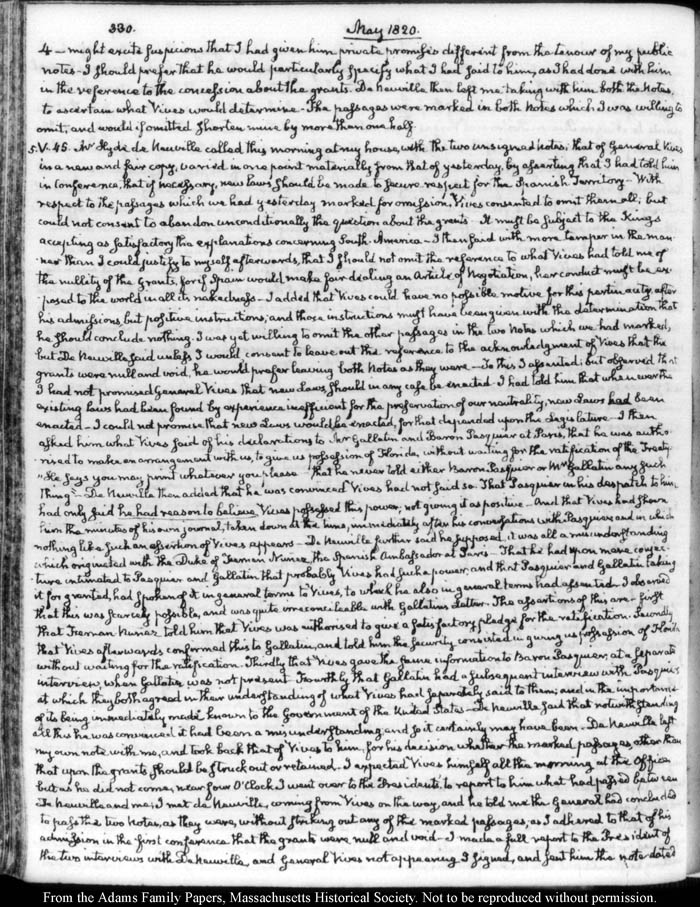 330. May 1820.
4 – might excite suspicions that I had given him private promises different from the tenour of my public
notes – I should prefer that he would particularly specify what I had said to him, as I had done with him
in the reference to the concession about the grants. De Neuville then left me taking with him both the Notes,
to ascertain what Vives would determine – The passages were marked in both Notes which I was willing to
omit, and would if omitted shorten mine by more than one half.
5. V. 45. Mr Hyde de Neuville called this morning at my house, with the two unsigned notes; that of General Vives
in a new and fair copy, varied in one point materially from that of yesterday, by asserting that I had told him
in conference, that if necessary, new laws should be made to secure respect for the Spanish Territory – With
respect to the passages which we had yesterday marked for omission, Vives consented to omit them all; but
could not consent to abandon unconditionally the question about the grants – It must be subject to the King's
accepting as satisfactory the explanations concerning South-America – I then said with more temper in the man-
ner than I could justify to myself afterwards, that I should not omit the reference to what Vives had told me of
the nullity of the Grants, for if Spain would make fair dealing an Article of Negotiation, her conduct must be ex-
posed to the world in all its nakedness – I added that Vives could have no possible motive for this pertinacity after
his admissions, but positive instructions, and those instructions must have been given with the determination that
he should conclude nothing. I was yet willing to omit the other passages in the two Notes which we had marked,
but De Neuville said unless I would consent to leave out this reference to the acknowledgment of Vives that the
grants were null and void, he would prefer leaving both Notes as they were – To this I assented; but observed that
I had not promised General Vives that new Laws should in any case be enacted. I had told him that whenever the
existing laws had been found by experience inefficient for the preservation of our neutrality, new Laws had been
enacted – I could not promise that new Laws would be enacted, for that depended upon the Legislature – I then
asked him what Vives said of his declarations to Mr Gallatin and Baron Pasquier at Paris, that he was autho-
rised to make an arrangement with us, to give us possession of Florida, without waiting for the ratification of the Treaty.
"He says you may print whatever you please that he never told either Baron Pasquier or Mr Gallatin any such
thing" – De Neuville then added that he was convinced Vives had not said so. That Pasquier in his despatch to him,
had only said he had reason to believe Vives possessed this power, not giving it as positive – And that Vives had shown
him the minutes of his own journal, taken down at the time, immediately after his conversations with Pasquier and in which
nothing like such an assertion of Vives appears – De Neuville further said he supposed it was all a misunderstanding
which originated with the Duke of Fernan Nunez, the Spanish Ambassador at Paris – That he had upon mere conjec-
ture intimated to Pasquier and Gallatin that probably Vives had such a power; and that Pasquier and Gallatin taking
it for granted, had spoken of it in general terms to Vives, to which he also in general terms had assented. I observed
that this was scarcely possible, and was quite irreconcileable with Gallatin's Letter. The assertions of this are – first
that Fernan Nunez, told him that Vives was authorised to give a satisfactory pledge for the ratification. Secondly
that Vives afterwards confirmed this to Gallatin, and told him the security consisted in giving us possession of Florida
without waiting for the ratification. Thirdly that Vives gave the same information to Baron Pasquier, at a separate
interview, when Gallatin was not present. Fourthly that Gallatin had a subsequent interview with Pasquier
at which they both agreed in their understanding of what Vives had separately said to them; and in the importance
of its being immediately made known to the Government of the United States – De Neuville said that notwithstanding
all this he was convinced it had been a misunderstanding, and so it certainly may have been – De Neuville left
my own note with me, and took back that of Vives to him, for his decision whether the marked passages, other than
that upon the grants should be struck out or retained – I expected Vives himself all the morning at the Office
but as he did not come, near four O'Clock I went over to the President's, to report to him what had passed between
De Neuville and me; I met de Neuville, coming from Vives on the way, and he told me the General had concluded
to pass the two Notes, as they were, without striking out any of the marked passages, as I adhered to that of his
admission in the first conference that the grants were null and void – I made a full report to the President of
the two interviews with De Neuville, and General Vives not appearing I signed, and sent him the note dated
From the Adams Family Papers, Massachusetts Historical Society. Not to be reproduced without permission.